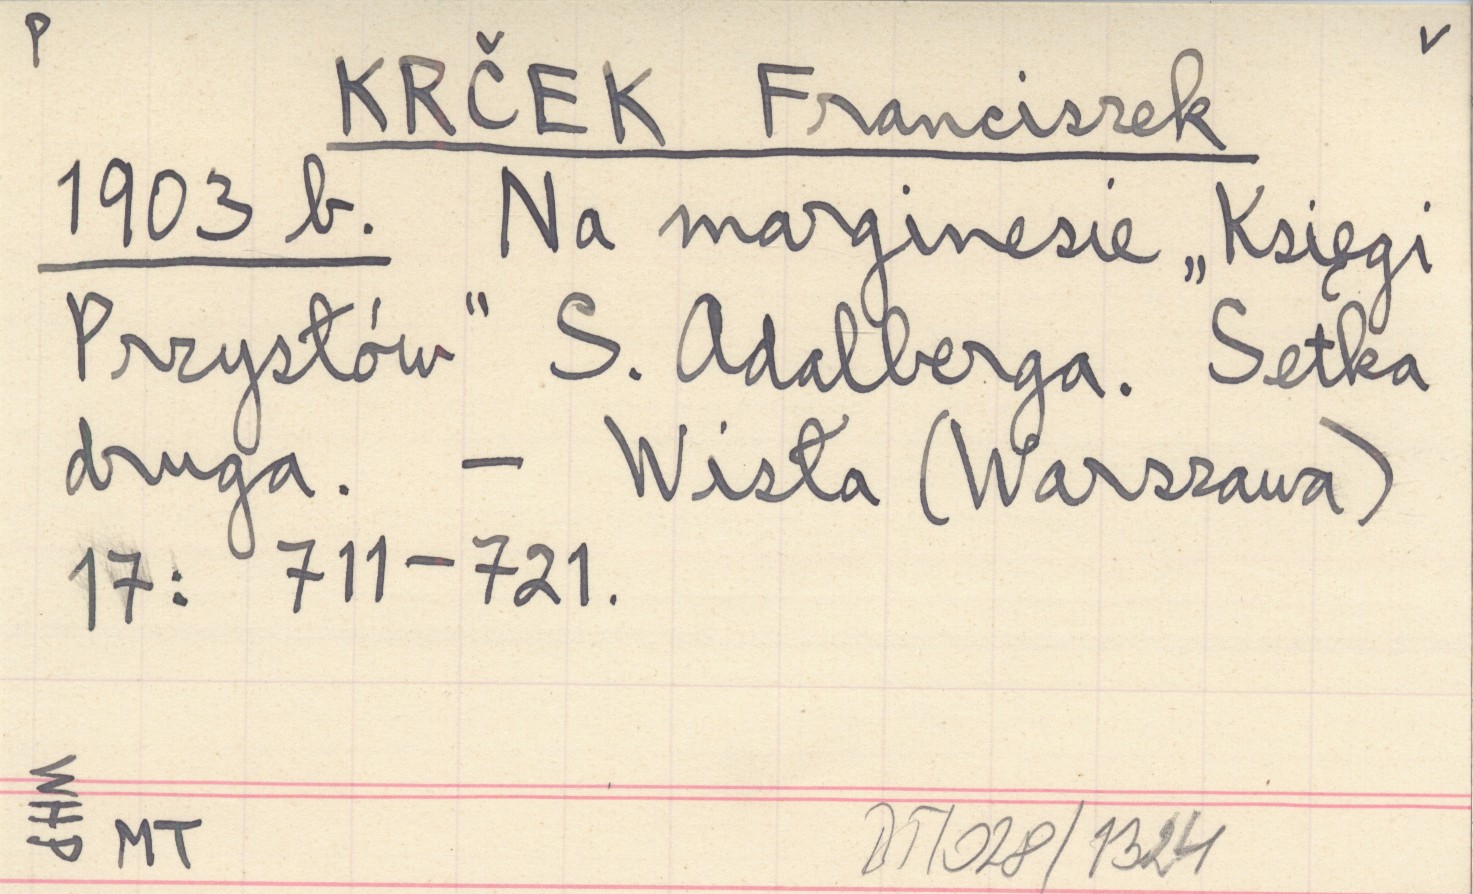 P
V
KRČEK Franciszek
1903 b. Na marginesie „Księgi
Przysłów" S. Adalberga. Setka
druga. — Wisła (Warszawa)
17: 711-721.
WHP
MT
DT/028/1324